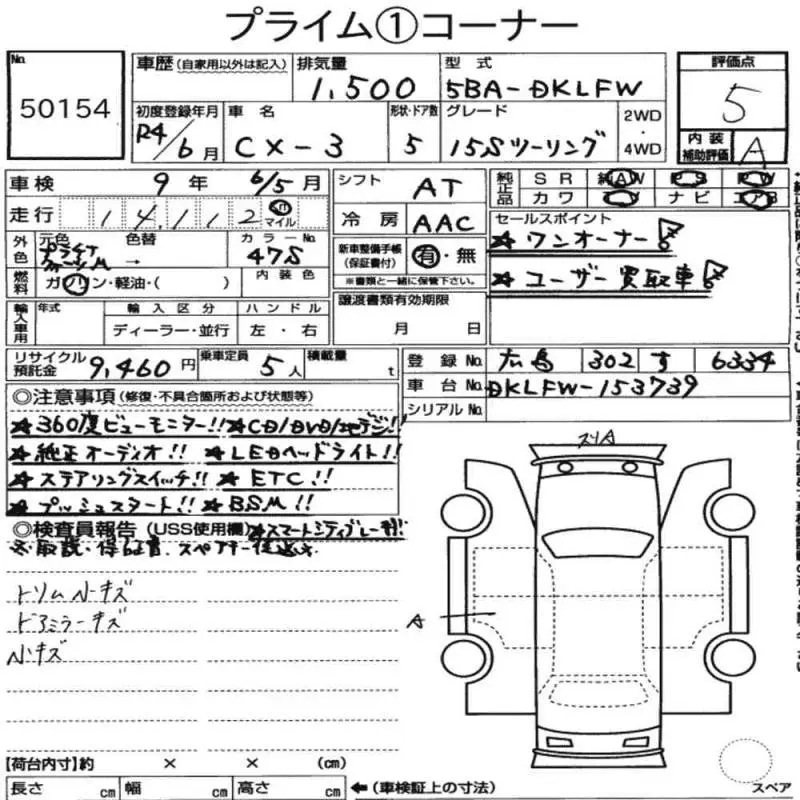 プライム①コーナー
No. 50154
車歴 (自家用以外は記入)
排気量 1,500
型式 5BA-DKLFW
評価点 5
初度登録年月 R4/6月
車名 CX-3
形状・ドア数 5
グレード 15Sツーリング
2WD・4WD
内装補助評価 A
車検 9年 6/5月
シフト AT
純正品 SR 純AW PS PW
カワ ナビ エアB
走行 14,112 Km マイル
冷房 AAC
セールスポイント
★ワンオーナー!
★ユーザー買取車!
外色 元色 色替 → カラーNo. 47S
新車整備手帳(保証書付) 有・無
※書類と一緒に保管下さい。
燃料 ガソリン・軽油・( ) 内装色
輸入車用 年式 輸入区分 ハンドル
ディーラー・並行 左・右
譲渡書類有効期限
月 日
リサイクル預託金 9,460円
乗車定員 5人
積載量 t
登録No. 広島 302 す 6334
車台No. DKLFW-153739
シリアルNo.
◎注意事項(修復・不具合箇所および状態等)
★360度ビューモニター!! ★CD/DVD/地デジ!!
★純正オーディオ!! ★LEDヘッドライト!!
★ステアリングスイッチ!! ★ETC!!
★プッシュスタート!! ★BSM!!
◎検査員報告(USS使用欄) ★スマートシティブレーキ!!
※取説・保証書、スペアキー後送り
トリム小キズ
ドアミラーキズ
小キズ
スリA
A
【荷台内寸】約 × × (cm)
長さ cm 幅 cm 高さ cm ←(車検証上の寸法)
スペア